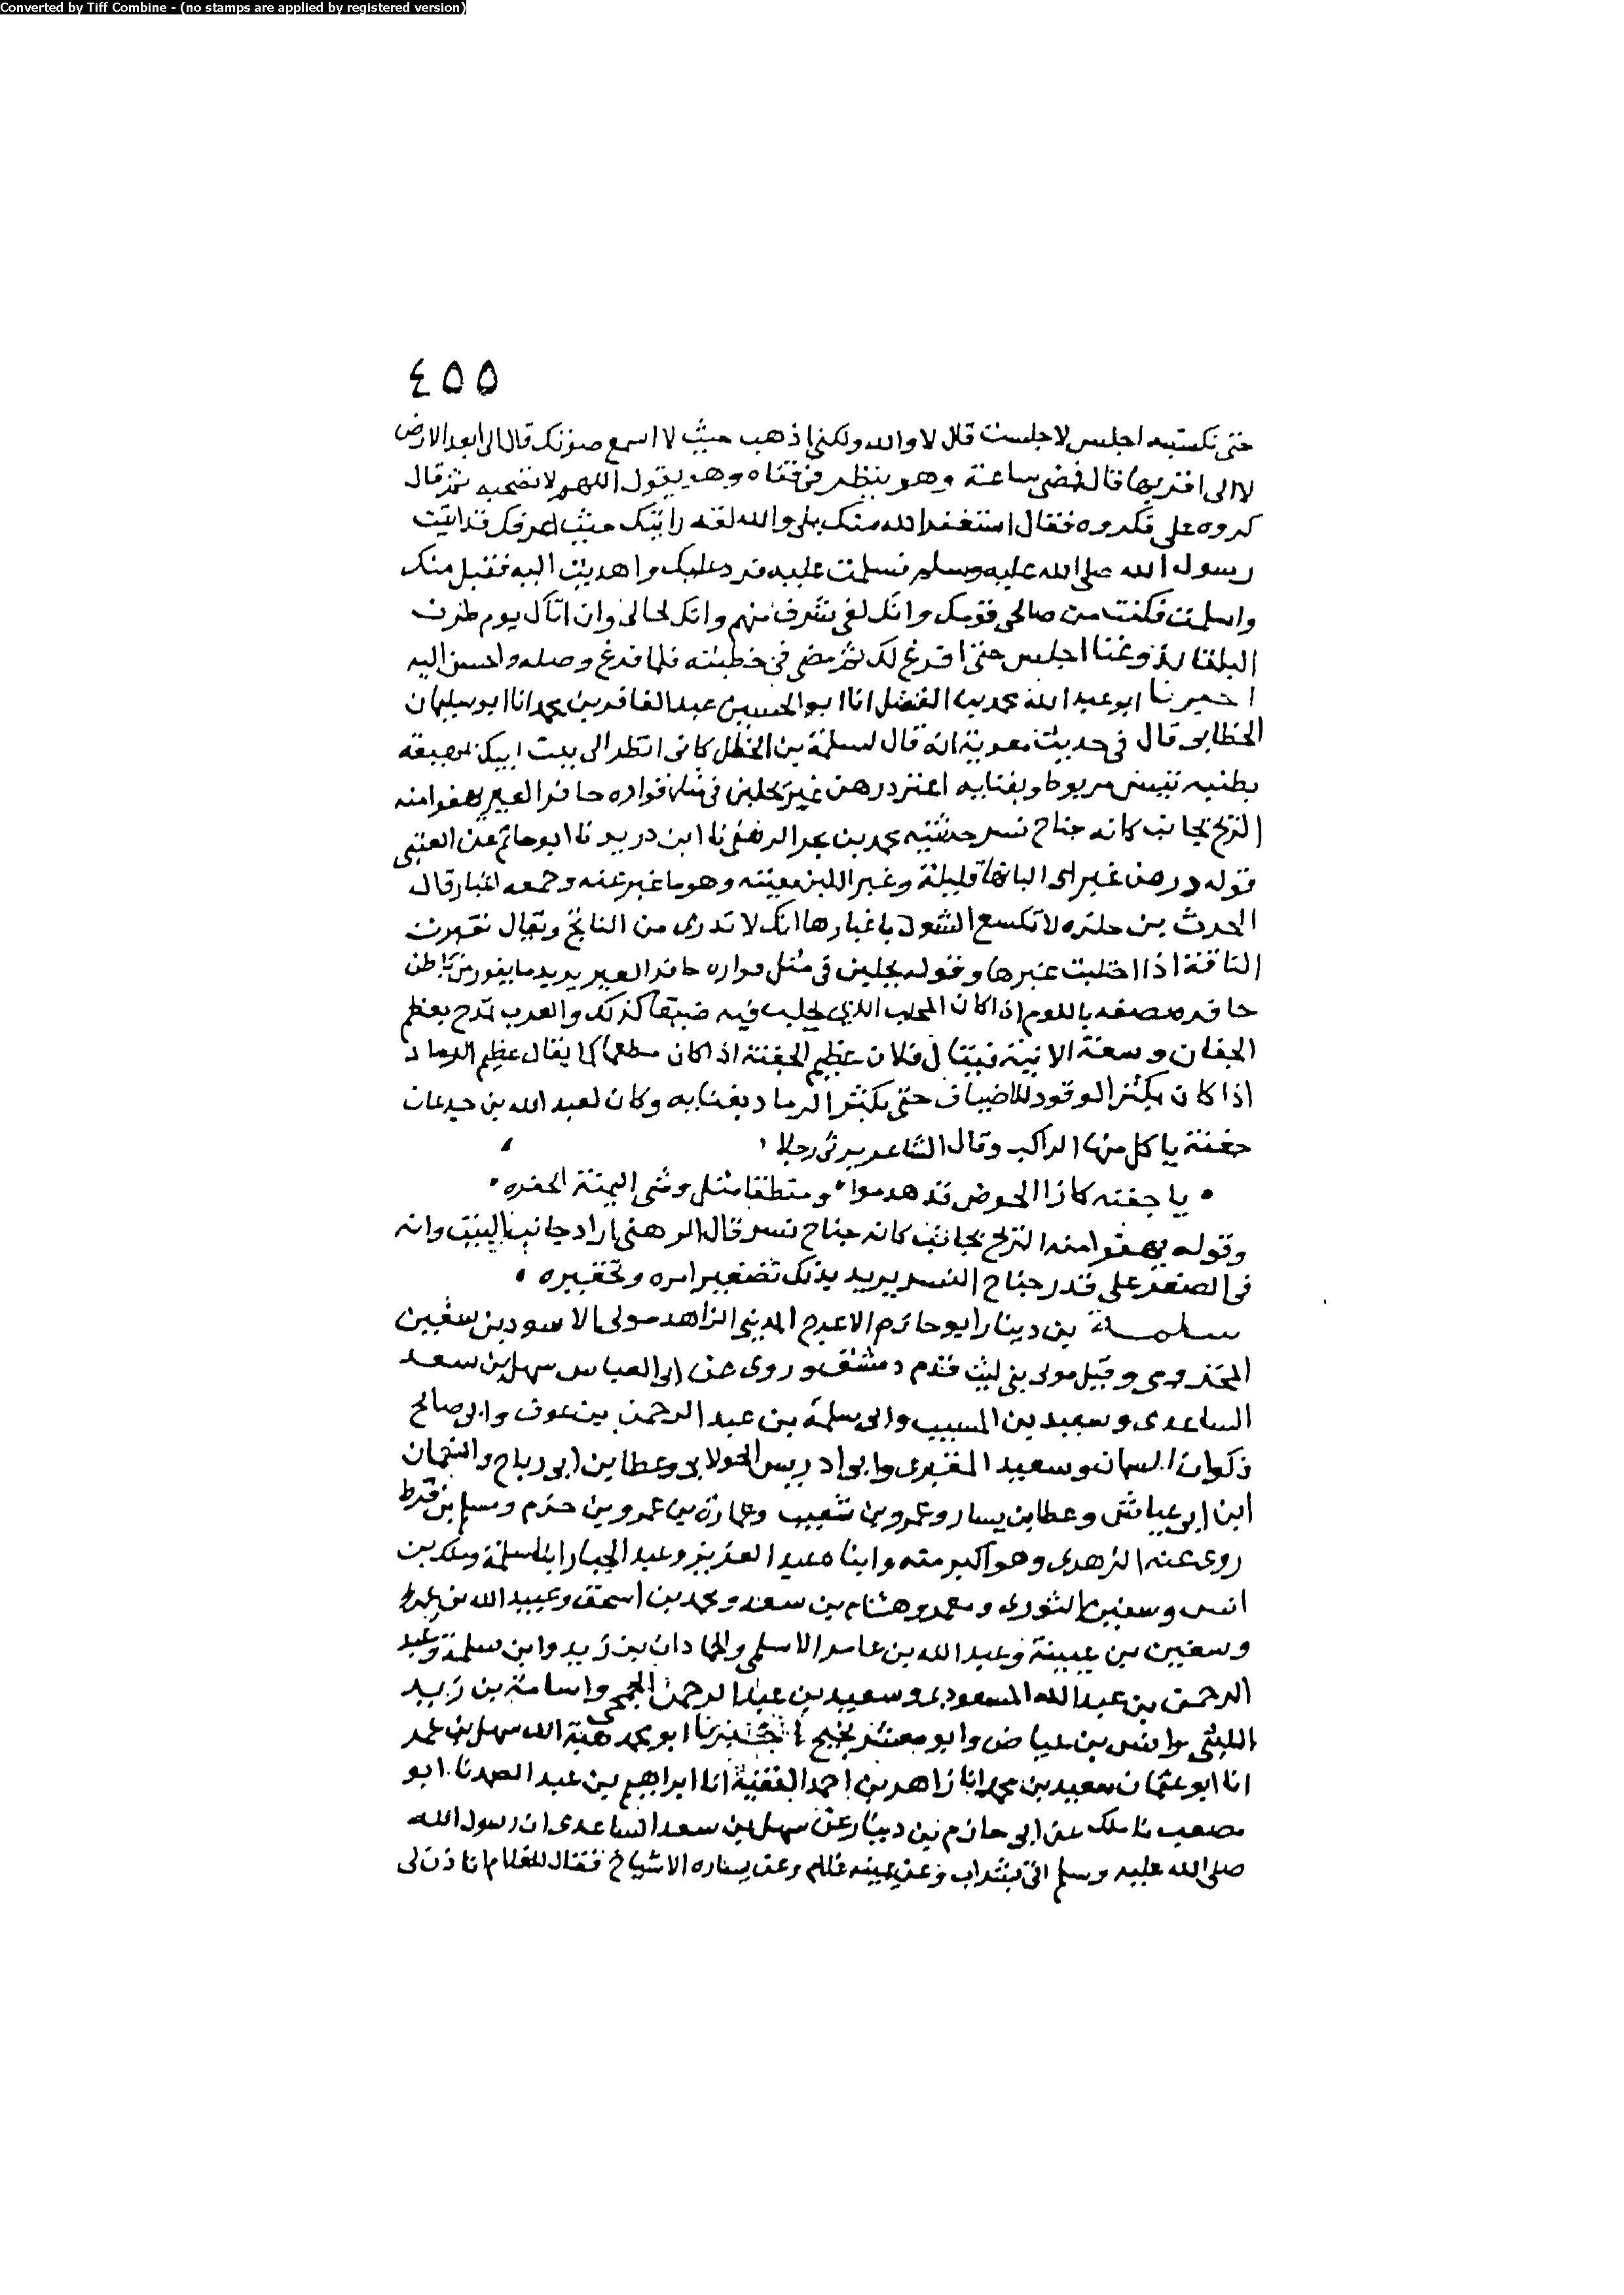 Converted by Tiff Combine - (no stamps are applied by registered version)
٤٥٥
حتى نكستبه اجلس لا جلست قال لا والله ولكني اذهب حيث لا اسمع صوتك قال الى ابعد الارض
لا الى اقربها قال فمضى ساعة وهو ينظر في قفاه وهو يقول اللهم لا تصحبه ثم قال
كروه على فكروه فقال استغفر الله منك بلى والله لقد رايتك حيث اعرفك قد اتيت
رسول الله صلى الله عليه وسلم فسلمت عليه فرد عليك واهديت اليه فقبل منك
واسلمت فكنت من صالحي قومك وانك لفي شرف منهم وانك لخالى وان انال يوم طرف
البلقا اجلس حتى افرغ لك ثم مضى في خطبته فلما فرغ وصله واحسن اليه
اخبرنا ابو عبد الله محمد بن الفضل انا ابو الحسين عبد الغافر بن محمد انا ابو سليمان
الخطابي قال في حديث معوية انه قال لسلمة بن الخطل كاني انظر الى بيت ابيك بمهيعة
بطنبه تيس مربوط وبفنايه اعنز درهن غبر يحلبن في مثل قواره حافر العير يهفوا منه
الريح بجانب كانه جناح نسر حدثنيه محمد بن بحر الرهني نا ابن دريد نا ابو حاتم عن العتبي
قوله درهن غبر اى البانها قليلة وغبر اللبن بقيته وهو ما غبر عنه وجمعه اغبار قال
الحرث بن حلزه لا تكسع الشول باغبارها انك لا تدرى من الناتج ويقال تغبرت
الناقة اذا احتلبت غبرها وقوله يحلبن في مثل قواره حافر العير يريد ما يقور من باطن
حافره يصفه باللوم اذا كان المحلب الذي يحلب فيه ضيقا كذلك والعرب تمدح بعظم
الجفان وسعة الانية فيقال فلان عظيم الجفنة اذا كان مطعما كما يقال عظيم الرماد
اذا كان يكثر الوقود للاضياف حتى يكثر الرماد بفنايه وكان لعبد الله بن جدعان
جفنة ياكل منها الراكب وقال الشاعر يرثى رجلا
• يا جفنه كازا الحوض قد هدموا • ومنطقا مثل وشى اليمنة الحبره •
وقوله يهفوا منه الريح بجانب كانه جناح نسر قال الرهني اراد جانب البيت وانه
في الصغر على قدر جناح النسر يريد بذلك تصغير امره وتحقيره •
سلمة بن دينار ابو حازم الاعرج المديني الزاهد مولى الاسود بن سفين
المخزومى وقيل مولى بني ليث قدم دمشق وروى عن ابى العباس سهل بن سعد
الساعدى وسعيد بن المسيب وابى سلمة بن عبد الرحمن بن عوف وابى صالح
ذكوان السمان وسعيد المقبرى وابى ادريس الخولاني وعطا بن ابى رباح والنعمان
ابن ابى عياش وعطا بن يسار وعمرو بن شعيب وعمارة بن عمرو بن حزم ومسلم بن قرط
روى عنه الزهرى وهو اكبر منه وابناه عبد العزيز وعبد الجبار ابنا سلمة وملك بن
انس وسفين الثورى ومعمر وهشام بن سعد ومحمد بن اسحق وعبيد الله بن عمر
وسفين بن عيينة وعبد الله بن عامر الاسلمي والحمادان بن زيد وابن سلمة وعبد
الرحمن بن عبد الله المسعودى وسعيد بن عبد الرحمن الجمحي واسامة بن زيد
الليثي وانس بن عياض وابو معشر نجيح اخبرنا ابو محمد هبة الله سهل بن عمر
انا ابو عثمان سعيد بن محمد انا زاهر بن احمد الفقيه انا ابراهيم بن عبد الصمد نا ابو
مصعب نا ملك عن ابى حازم بن دينار عن سهل بن سعد الساعدى ان رسول الله
صلى الله عليه وسلم اتى بشراب وعن يمينه غلام وعن يساره الاشياخ فقال للغلام اتاذن لى